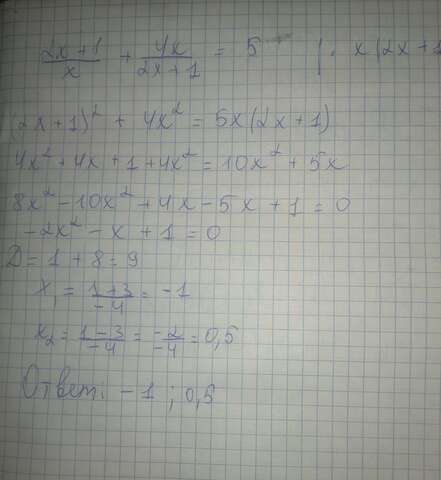 (2x+1)/x + 4x/(2x+1) = 5 | · x(2x+1
(2x+1)² + 4x² = 5x(2x+1)
4x²+4x+1+4x² = 10x²+5x
8x²-10x²+4x-5x+1=0
-2x²-x+1=0
D=1+8=9
x₁ = (1+3)/(-4) = -1
x₂ = (1-3)/(-4) = (-2)/(-4) = 0,5
Ответ: -1; 0,5